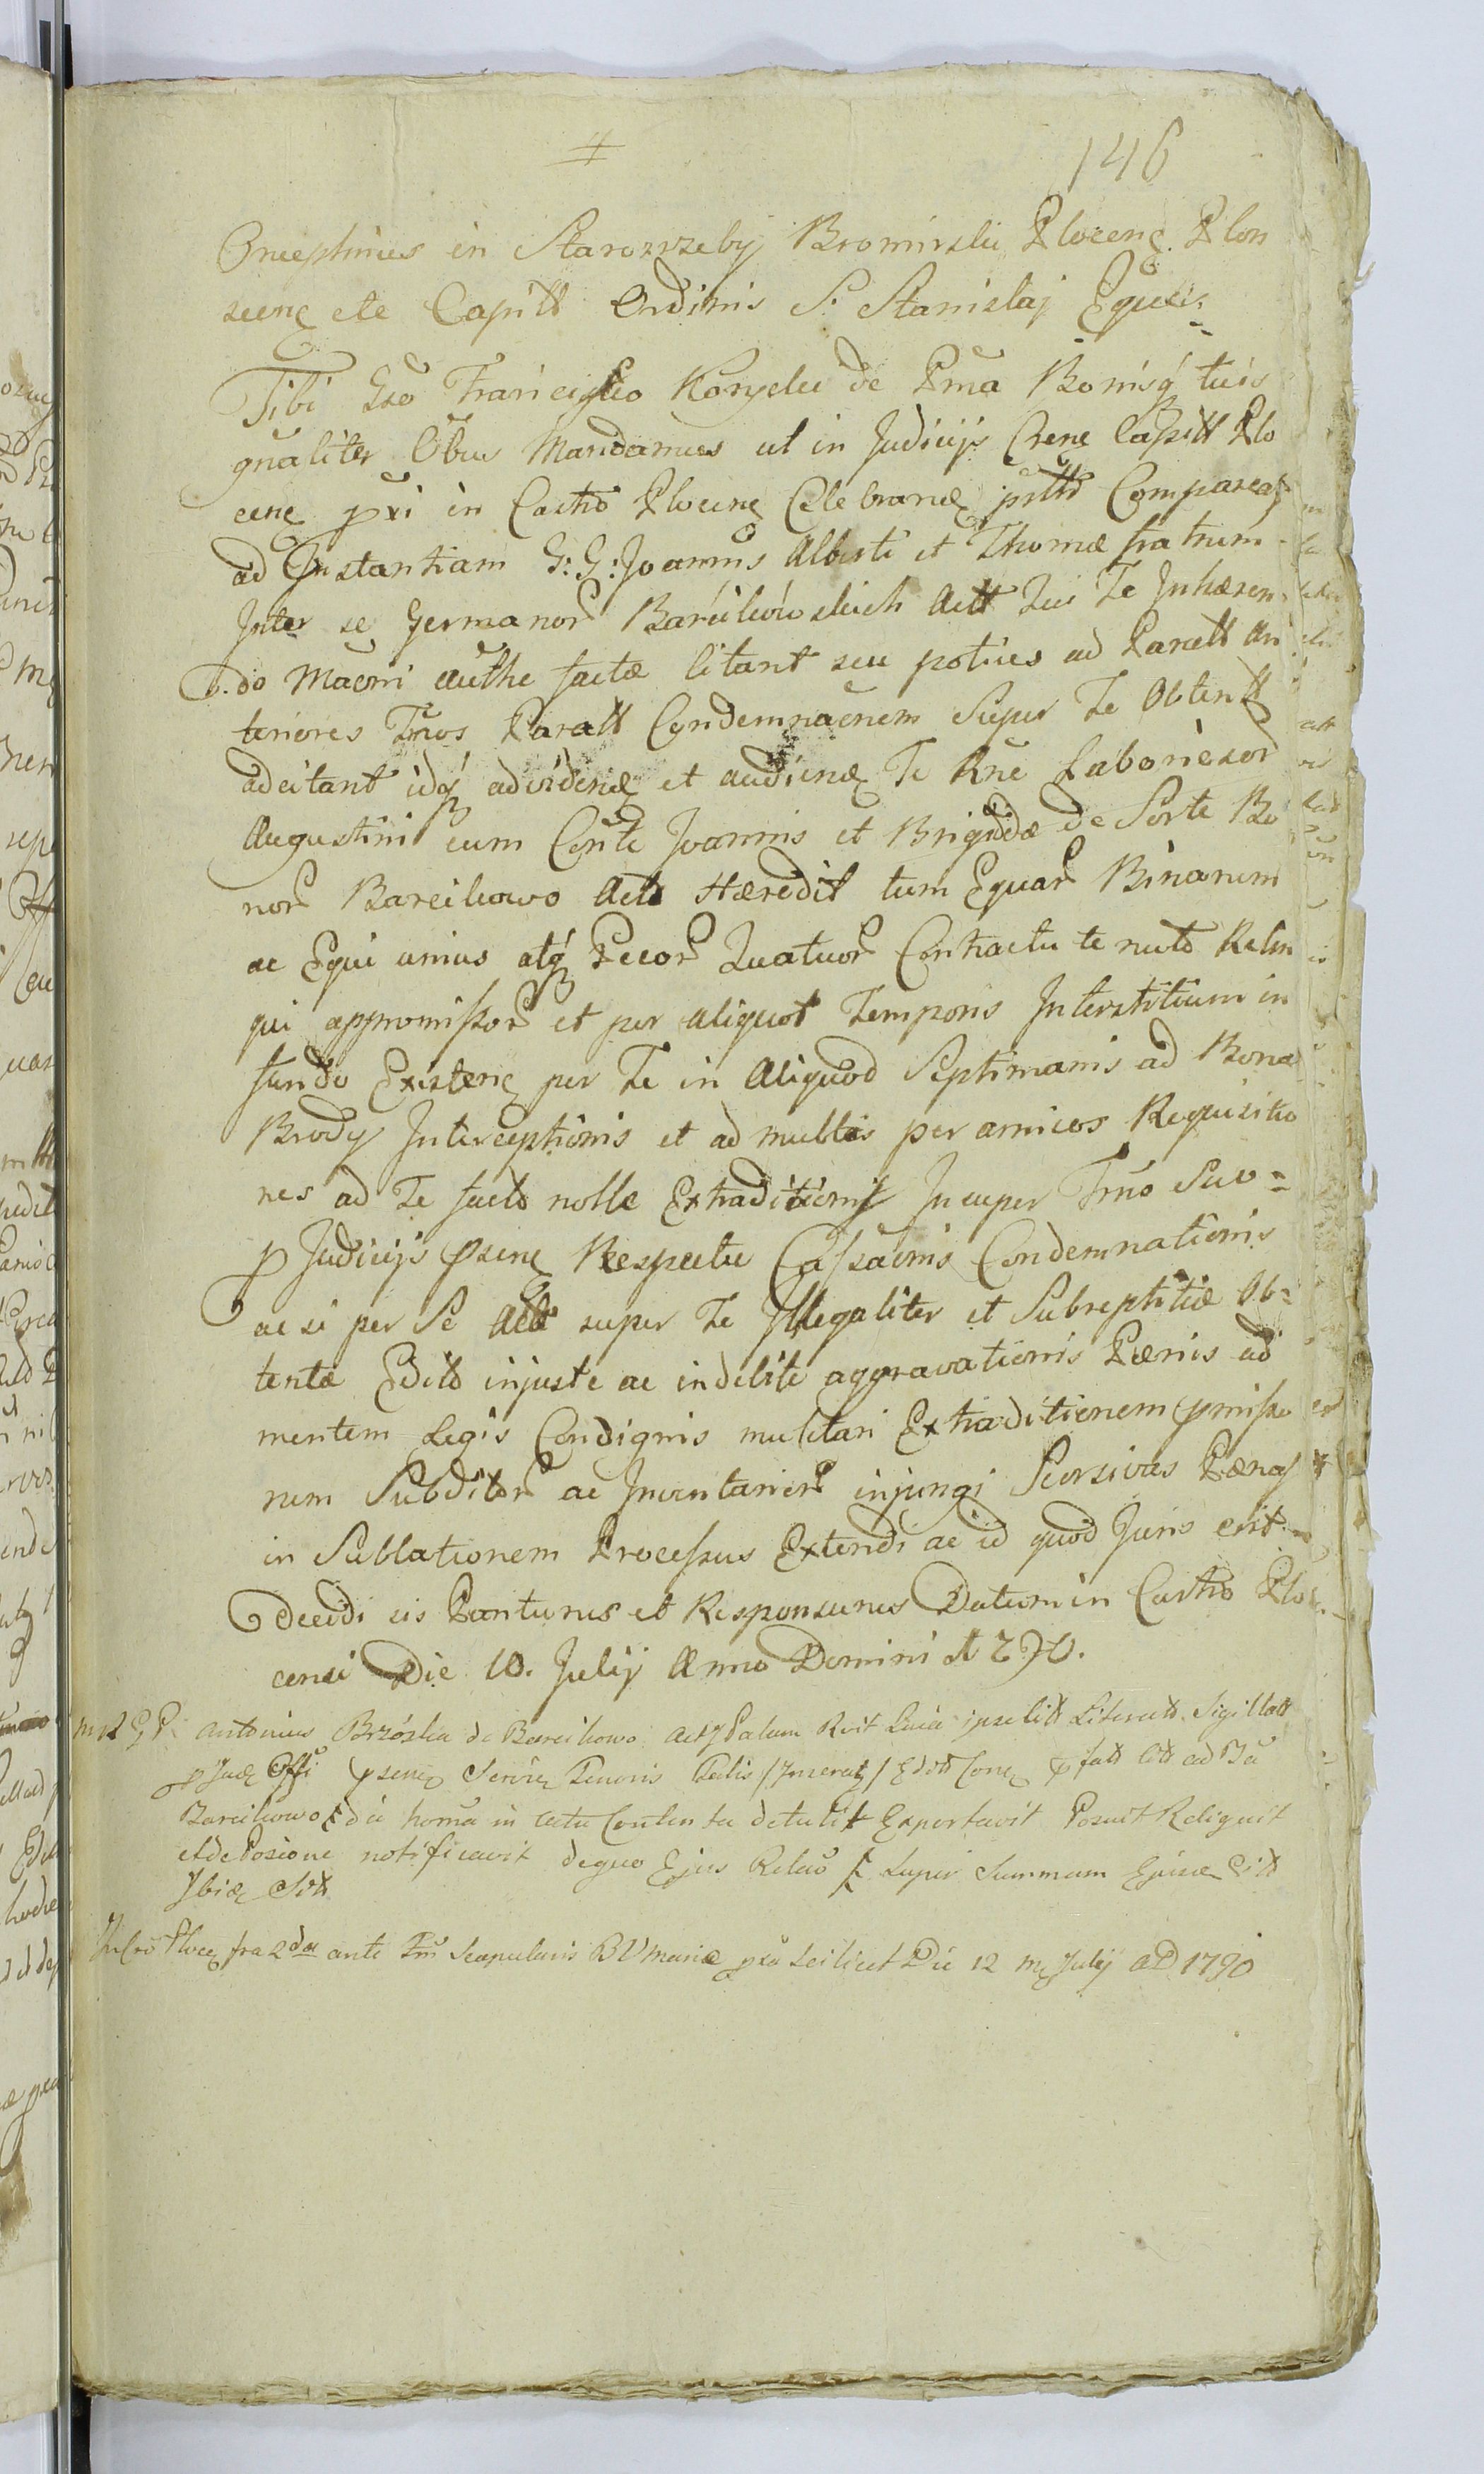 146
Onufrius in Starozrzeby Bromirski Plocenς Plon
scenς etc Capitt Ordinis S. Stanislaj Eques
Tibi Gso Francisco Konycki de Pma Bonisq tuis
gnaliter Obus Mandamus ut in Judicijs Crenς Capitt Plo
cenς pri in Castro Plocenς Celebranς psttr Compareas
ad Instantiam G: G: Joannis Alberti et Thomæ fratrum
Inter se Germanor Barcikowskich Actt Qui Te Inhæren
do Maoni authe factæ litant seu potius ad Paratt An
teriores Tnos Paratt Condemnaonem Super Te Obtentt
adcitant idq advidenς et audienς Te Rne Laboriosor
Augustini cum Conte Joannis et Brigiddæ de Sorte Bo
nor Barcikowo Acto Hæredit tum Equar Binarum
ac Equi unius atq Pecor Quatuor Contractu tento Relin
qui appromissor et per aliquot Temporis Interstitium in
fundo Existenς per Te in Aliquod Septimanis ad Bona
Brody Interceptionis et ad multas per amicos Requisitio
nes ad Te facto nolle Extraditionis Insuper Tmo Suo
p Judicijs psenς Respectu Cassaonis Condemnationis
ac si per Se Acto super Te Illegaliter et Subreptitiæ Ob=
tentæ Edito injuste ac indebite aggravationis Pænis ad
mentem Legis Condignis mulctari Extraditionem pmisso
rum Subditor ac Inventarior injungi Scorsivas Pænas
in Sublationem Processus Extendi ac id quod Juris erit
decidi sis Pariturus et Responsurus Datum in Castro Plo
censi Die 10. Julij Anno Domini 1790.
Antonius Brzóska de Barcikowo Palam Rcit Quia ipse litt Literatt Sigillatt
p psenς Serirς Tenoris Talis / Inseratς / Editt
Barcikowo in Contenta detulit Exportavit Posuit Reliquit
et de Posione notificavit de quo Ejus Relaõ super Summam
Ibiς
In Cro Plocς fra 2da ante Tm Scapularis BV Mariæ pxa Scilicet Die 12 mς Julij AD 1790